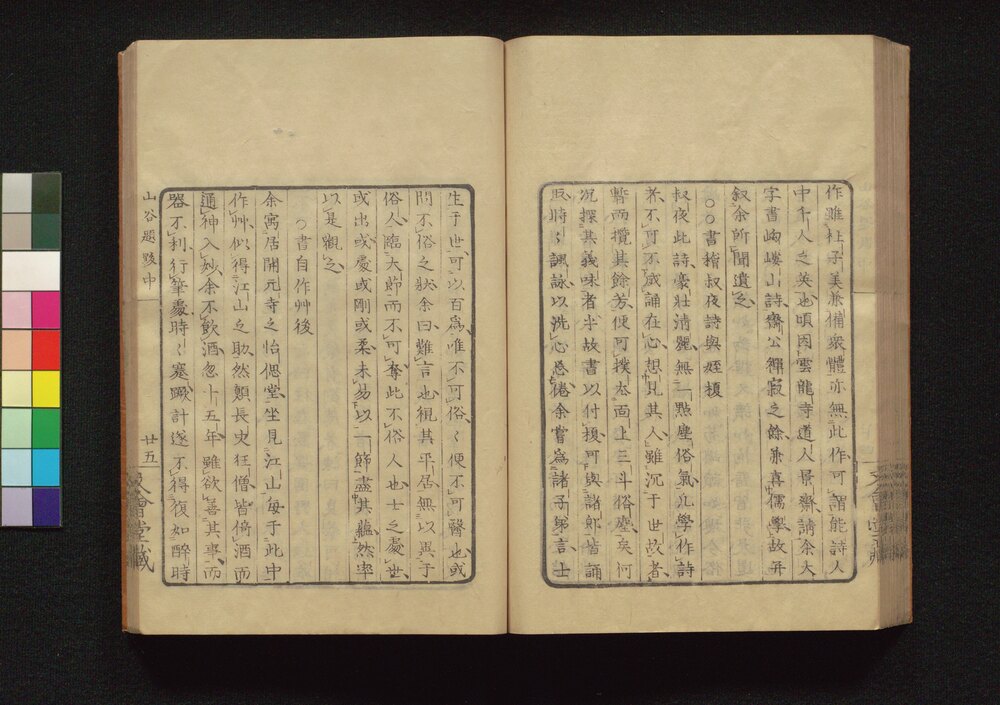 作雖杜子美兼備衆體亦無此作可謂能詩人
中千人之英也頃因雲龍寺道人景齋請余大
字書岣嶁山詩齋公禪寂之餘兼喜儒學故并
叙余所聞遺之
○書嵇叔夜詩與姪榎
叔夜此詩豪壯清麗無一點塵俗氣凡學作詩
者不可不成誦在心想見其人雖沉于世故者
暫而攬其餘芳便可撲去面上三斗俗塵矣何
况探其義味者乎故書以付榎可與諸郎皆誦
取時〻諷詠以洗心忘倦余嘗爲諸子弟言士
生于世可以百爲唯不可俗〻便不可醫也或
問不俗之狀余曰難言也視其平居無以異于
俗人臨大節而不可奪此不俗人也士之處世
或出或處或剛或柔未易以一節盡其蘊然率
以是觀之
○書自作艸後
余寓居開元寺之怡偲堂坐見江山每于此中
作艸似得江山之助然顚長史狂僧皆倚酒而
通神入妙余不飮酒忽十五年雖欲善其事而
器不利行筆處時〻蹇蹶計遂不得復如醉時
山谷題跋中
廿五
文會堂藏